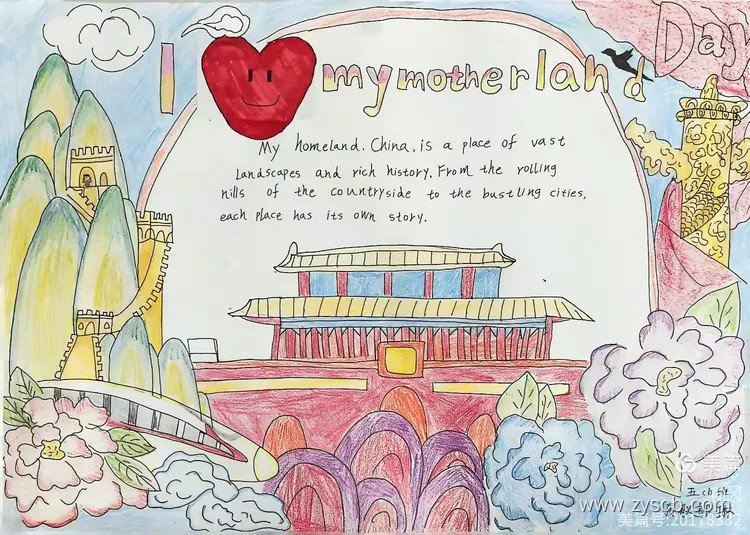 I my motherland Day
My homeland. China, is a place of vast
Landscapes and rich history. From the rolling
hills of the countryside to the bustling cities,
each place has its own story.
美篇
www.zyscp.com
美篇号:20178332